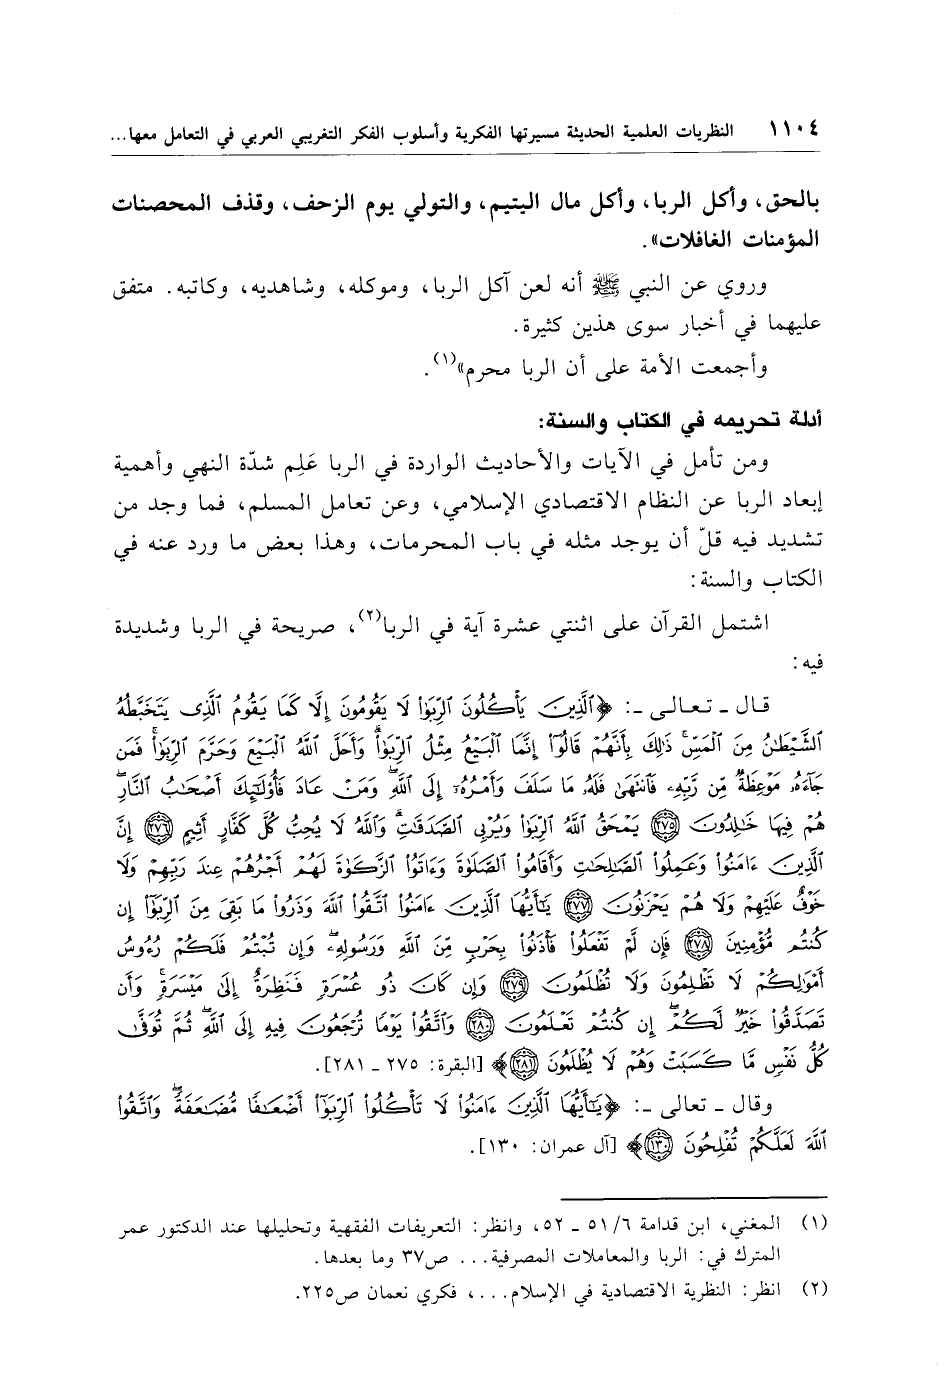 ١١٠٤ النظريات العلمية الحديثة مسيرتها الفكرية وأسلوب الفكر التغريبي العربي في التعامل معها...
بالحق، وأكل الربا، وأكل مال اليتيم، والتولي يوم الزحف، وقذف المحصنات
المؤمنات الغافلات».
وروي عن النبي ﷺ أنه لعن آكل الربا، وموكله، وشاهديه، وكاتبه. متفق
عليهما في أخبار سوى هذين كثيرة.
وأجمعت الأمة على أن الربا محرم»(١).
أدلة تحريمه في الكتاب والسنة:
ومن تأمل في الآيات والأحاديث الواردة في الربا عَلِم شدّة النهي وأهمية
إبعاد الربا عن النظام الاقتصادي الإسلامي، وعن تعامل المسلم، فما وجد من
تشديد فيه قلّ أن يوجد مثله في باب المحرمات، وهذا بعض ما ورد عنه في
الكتاب والسنة:
اشتمل القرآن على اثنتي عشرة آية في الربا(٢)، صريحة في الربا وشديدة
فيه:
قال ـ تعالى ـ: ﴿ٱلَّذِينَ يَأْكُلُونَ ٱلرِّبَوٰا۟ لَا يَقُومُونَ إِلَّا كَمَا يَقُومُ ٱلَّذِى يَتَخَبَّطُهُ
ٱلشَّيْطَٰنُ مِنَ ٱلْمَسِّ ۚ ذَٰلِكَ بِأَنَّهُمْ قَالُوٓا۟ إِنَّمَا ٱلْبَيْعُ مِثْلُ ٱلرِّبَوٰا۟ ۗ وَأَحَلَّ ٱللَّهُ ٱلْبَيْعَ وَحَرَّمَ ٱلرِّبَوٰا۟ ۚ فَمَن
جَآءَهُۥ مَوْعِظَةٌ مِّن رَّبِّهِۦ فَٱنتَهَىٰ فَلَهُۥ مَا سَلَفَ وَأَمْرُهُۥٓ إِلَى ٱللَّهِ ۖ وَمَنْ عَادَ فَأُو۟لَٰٓئِكَ أَصْحَٰبُ ٱلنَّارِ ۖ
هُمْ فِيهَا خَٰلِدُونَ ﴿٢٧٥﴾ يَمْحَقُ ٱللَّهُ ٱلرِّبَوٰا۟ وَيُرْبِى ٱلصَّدَقَٰتِ ۗ وَٱللَّهُ لَا يُحِبُّ كُلَّ كَفَّارٍ أَثِيمٍ ﴿٢٧٦﴾ إِنَّ
ٱلَّذِينَ ءَامَنُوا۟ وَعَمِلُوا۟ ٱلصَّٰلِحَٰتِ وَأَقَامُوا۟ ٱلصَّلَوٰةَ وَءَاتَوُا۟ ٱلزَّكَوٰةَ لَهُمْ أَجْرُهُمْ عِندَ رَبِّهِمْ وَلَا
خَوْفٌ عَلَيْهِمْ وَلَا هُمْ يَحْزَنُونَ ﴿٢٧٧﴾ يَٰٓأَيُّهَا ٱلَّذِينَ ءَامَنُوا۟ ٱتَّقُوا۟ ٱللَّهَ وَذَرُوا۟ مَا بَقِىَ مِنَ ٱلرِّبَوٰٓا۟ إِن
كُنتُم مُّؤْمِنِينَ ﴿٢٧٨﴾ فَإِن لَّمْ تَفْعَلُوا۟ فَأْذَنُوا۟ بِحَرْبٍ مِّنَ ٱللَّهِ وَرَسُولِهِۦ ۖ وَإِن تُبْتُمْ فَلَكُمْ رُءُوسُ
أَمْوَٰلِكُمْ لَا تَظْلِمُونَ وَلَا تُظْلَمُونَ ﴿٢٧٩﴾ وَإِن كَانَ ذُو عُسْرَةٍ فَنَظِرَةٌ إِلَىٰ مَيْسَرَةٍ ۚ وَأَن
تَصَدَّقُوا۟ خَيْرٌ لَّكُمْ ۖ إِن كُنتُمْ تَعْلَمُونَ ﴿٢٨٠﴾ وَٱتَّقُوا۟ يَوْمًا تُرْجَعُونَ فِيهِ إِلَى ٱللَّهِ ۖ ثُمَّ تُوَفَّىٰ
كُلُّ نَفْسٍ مَّا كَسَبَتْ وَهُمْ لَا يُظْلَمُونَ ﴿٢٨١﴾﴾ [البقرة: ٢٧٥ ـ ٢٨١].
وقال ـ تعالى ـ: ﴿يَٰٓأَيُّهَا ٱلَّذِينَ ءَامَنُوا۟ لَا تَأْكُلُوا۟ ٱلرِّبَوٰٓا۟ أَضْعَٰفًا مُّضَٰعَفَةً ۖ وَٱتَّقُوا۟
ٱللَّهَ لَعَلَّكُمْ تُفْلِحُونَ ﴿١٣٠﴾﴾ [آل عمران: ١٣٠].
(١) المغني، ابن قدامة ٥١/٦ ـ ٥٢، وانظر: التعريفات الفقهية وتحليلها عند الدكتور عمر
المترك في: الربا والمعاملات المصرفية... ص٣٧ وما بعدها.
(٢) انظر: النظرية الاقتصادية في الإسلام...، فكري نعمان ص٢٢٥.